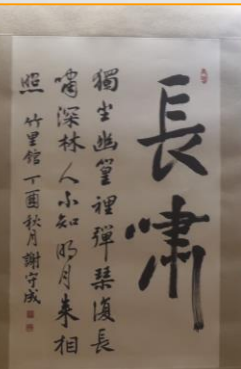 長嘯
獨坐幽篁裡彈琴復長
嘯深林人不知明月来相
照 竹里館 丁酉秋月 謝守成